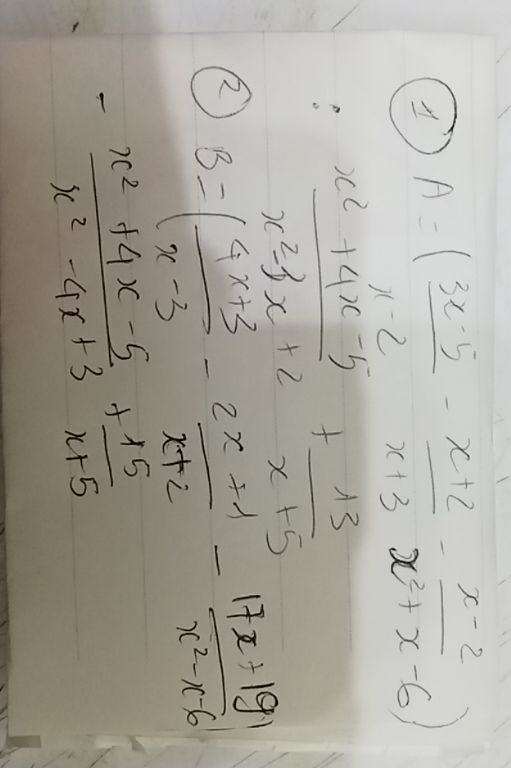 ① A = ( (3x-5)/(x-2) - (x+2)/(x+3) - (x-2)/(x²+x-6) )
: (x²+4x-5)/(x²-3x+2) + 13/(x+5)
② B = ( (4x+3)/(x-3) - (2x+1)/(x+2) - (17x+19)/(x²-x-6) )
- (x²+4x-5)/(x²-4x+3) + 15/(x+5)